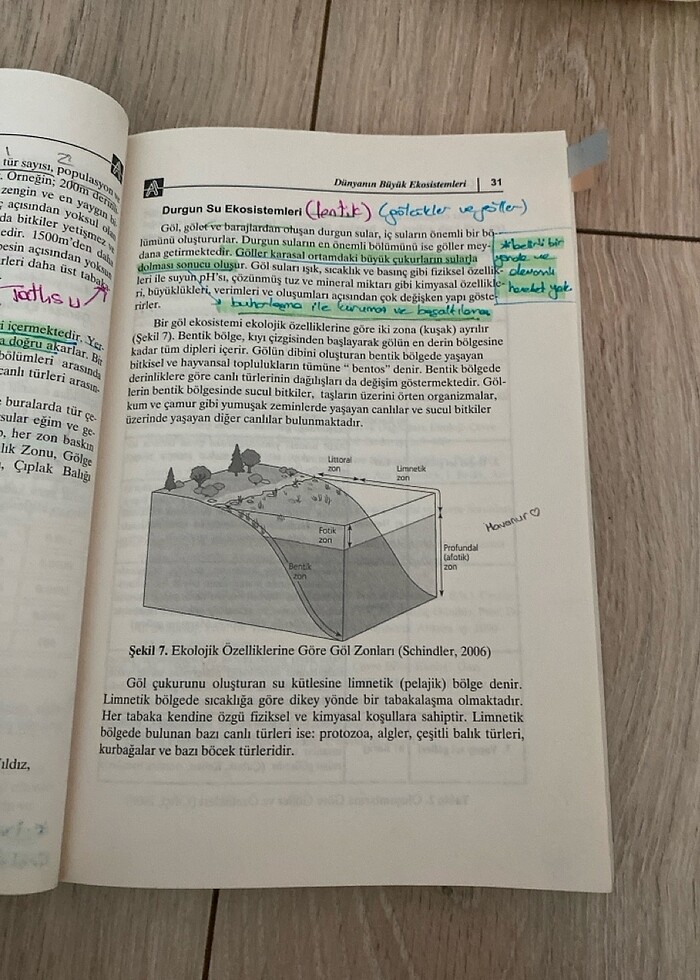 tür sayısı, populasyon
. Örneğin; 200m derinl
zengin ve en yaygın b
ç açısından yoksul olan
da bitkiler yetişmez v
edir. 1500m'den daha
besin açısından yoksun
rleri daha üst tabak
Tatlısu
i içermektedir. Yer-
a doğru akarlar. Bir
bölümleri arasında
canlı türleri arasın-
buralarda tür çe-
sular eğim ve ge-
, her zon baskın
lık Zonu, Gölge
, Çıplak Balığı
ıldız,
Dünyanın Büyük Ekosistemleri 31
Durgun Su Ekosistemleri (lentik) (gölcükler ve göller)
Göl, gölet ve barajlardan oluşan durgun sular, iç suların önemli bir bö-
lümünü oluştururlar. Durgun suların en önemli bölümünü ise göller mey-
dana getirmektedir. Göller karasal ortamdaki büyük çukurların sularla
dolması sonucu oluşur. Göl suları ışık, sıcaklık ve basınç gibi fiziksel özellik-
leri ile suyun pH'sı, çözünmüş tuz ve mineral miktarı gibi kimyasal özellikle-
ri, büyüklükleri, verimleri ve oluşumları açısından çok değişken yapı göste-
rirler.
*belirli bir
yönde ve
devamlı
hareket yok
buharlaşma ile kuruma ve boşaltılma
Bir göl ekosistemi ekolojik özelliklerine göre iki zona (kuşak) ayrılır
(Şekil 7). Bentik bölge, kıyı çizgisinden başlayarak gölün en derin bölgesine
kadar tüm dipleri içerir. Gölün dibini oluşturan bentik bölgede yaşayan
bitkisel ve hayvansal toplulukların tümüne " bentos" denir. Bentik bölgede
derinliklere göre canlı türlerinin dağılışları da değişim göstermektedir. Göl-
lerin bentik bölgesinde sucul bitkiler, taşların üzerini örten organizmalar,
kum ve çamur gibi yumuşak zeminlerde yaşayan canlılar ve sucul bitkiler
üzerinde yaşayan diğer canlılar bulunmaktadır.
Littoral
zon
Limnetik
zon
Fotik
zon
Bentik
zon
Profundal
(afotik)
zon
Havanur ♡
Şekil 7. Ekolojik Özelliklerine Göre Göl Zonları (Schindler, 2006)
Göl çukurunu oluşturan su kütlesine limnetik (pelajik) bölge denir.
Limnetik bölgede sıcaklığa göre dikey yönde bir tabakalaşma olmaktadır.
Her tabaka kendine özgü fiziksel ve kimyasal koşullara sahiptir. Limnetik
bölgede bulunan bazı canlı türleri ise: protozoa, algler, çeşitli balık türleri,
kurbağalar ve bazı böcek türleridir.